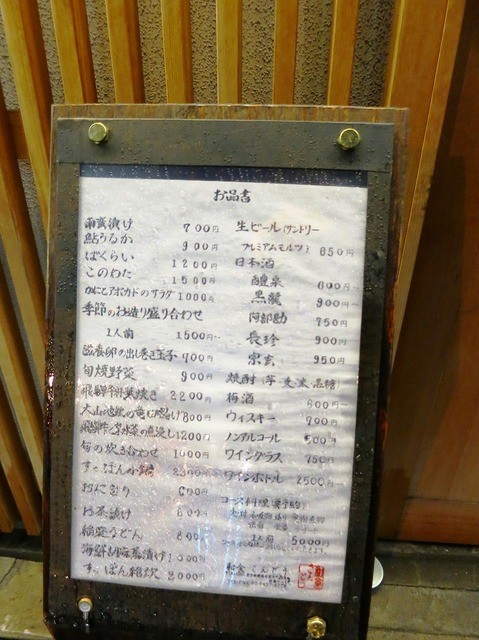 お品書
南蛮漬け 700円
鮎うるか 900円
ばくらい 1200円
このわた 1500円
かにとアボカドのサラダ 1000円
季節のお造り盛り合わせ
1人前 1500円~
の出し巻き玉子 700円
旬焼野菜 900円
飛騨牛 焼き 2200
大山地鶏の竜 800円
1200円
旬の炊き合わせ 1000円
すっぽん小鍋
おにぎり 600円
お茶漬け 800円
稲庭うどん 800円
海鮮胡麻茶漬け
すっぽん雑炊 3000円
生ビール(サントリー
プレミアムモルツ) 650円
日本酒
醴泉 600円~
黒龍 900円~
阿部勘 750円
長珍 900円
宗玄 950円
焼酎(芋、麦、米、黒糖)
梅酒 600円~
ウィスキー 700円
ノンアルコール 500円
ワイングラス 750円
ワインボトル 2500円~
コース料理(要予約)
1人前 5000円